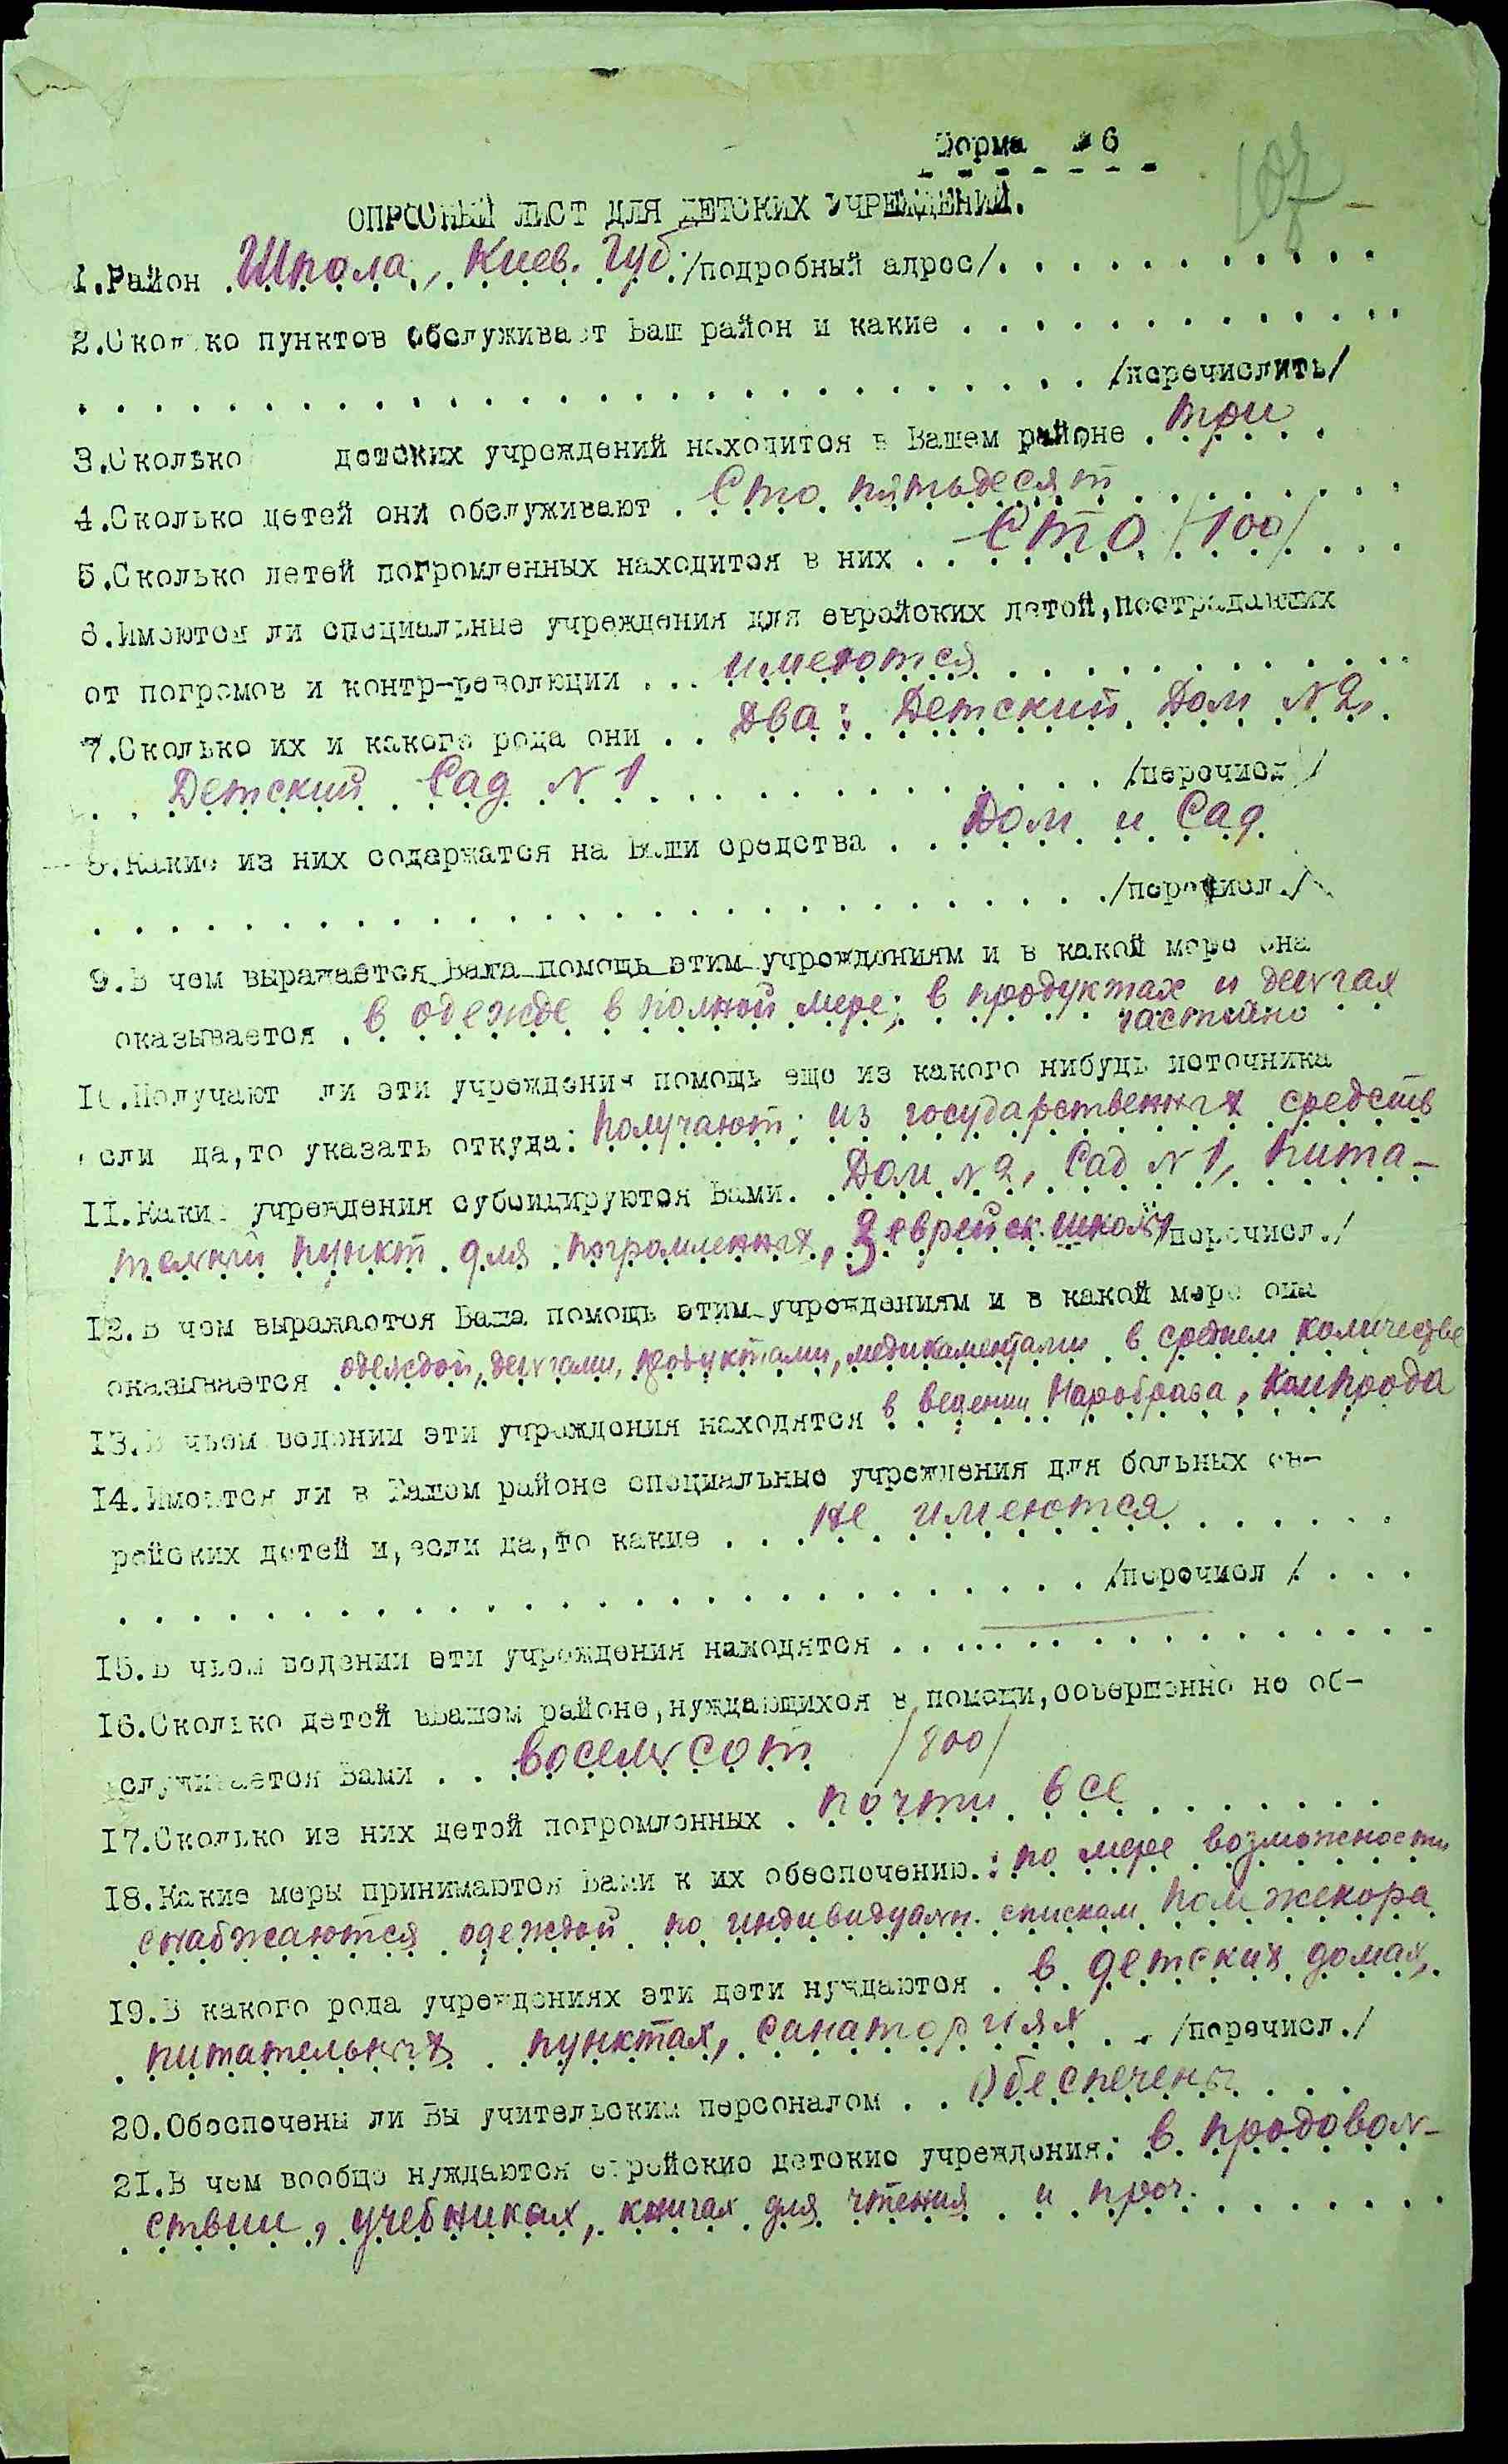 Форма № 6
107
ОПРОСНЫЙ ЛИСТ ДЛЯ ДЕТСКИХ УЧРЕЖДЕНИЙ.
1.Район Шпола, Киев. Губ. /подробный адрес/. . . . . . . . . . .
2.Сколько пунктов обслуживает Ваш район и какие . . . . . . . . . . . .
. . . . . . . . . . . . . . . . . . . . . . . . . . . /перечислить/
3.Сколько детских учреждений находится в Вашем районе . три . .
4.Сколько детей они обслуживают . Сто пятьдесят . . . . . . . .
5.Сколько детей погромленных находится в них . . Сто /100/ . . .
6.Имеются ли специальные учреждения для еврейских детей,пострадавших
от погромов и контр-революции . . . имеются . . . . . . . . . . .
7.Сколько их и какого рода они . . Два: Детский Дом № 2, .
. . Детский Сад № 1 . . . . . . . . . . . . /перечисл /
8.Какие из них содержатся на Ваши средства . . Дом и Сад.
. . . . . . . . . . . . . . . . . . . . . . . . . . . ./перечисл./
9.В чем выражается Ваша помощь этим учреждениям и в какой мере она
оказывается . в одежде в полной мере; в продуктах и деньгах
частично
10.Получают ли эти учреждения помощь еще из какого нибудь источника
если да,то указать откуда: Получают: из государственных средств
II.Какие учреждения субсидируются Вами. . Дом № 2, Сад № 1, пита-
тельный пункт для погромленных, 3 еврейск. школы /перечисл./
I2.В чем выражается Ваша помощь этим учреждениям и в какой мере она
оказывается одеждой, деньгами, продуктами, медикаментами в среднем количестве
I3.В чьем ведении эти учреждения находятся в ведении Наробраза, Компрода
I4.Имеются ли в Вашем районе специальные учреждения для больных ев-
рейских детей и,если да,то какие . . . не имеются . . . . . .
. . . . . . . . . . . . . . . . . . . . . . . . . . . /перечисл / . . .
I5.В чьем ведении эти учреждения находятся . . . . . . . . . . . . . . .
I6.Сколько детей вВашем районе,нуждающихся в помощи,совершенно не об-
служивается Вами . . восемьсот /800/
I7.Сколько из них детей погромленных . почти все . . . . . . .
I8.Какие меры принимаются Вами к их обеспечению.: по мере возможности
снабжаются одеждой по индивидуальн. спискам Помжекора
I9.В какого рода учреждениях эти дети нуждаются . в детских домах,
. питательных пунктах, санаториях . . /перечисл./
20.Обеспечены ли Вы учительским персоналом . . Обеспечены . . .
2I.В чем вообще нуждаются еврейские детские учреждения: в продоволь-
ствии, учебниках, книгах для чтения и проч. . . . . . .